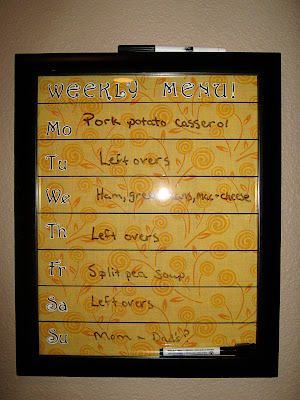 WEEKLY MENU!
Mo Pork potato casserol
Tu Leftovers
We Ham, green beans, mac-cheese
Th Left overs
Fr Split pea soup
Sa Leftovers
Su Mom & Dads?